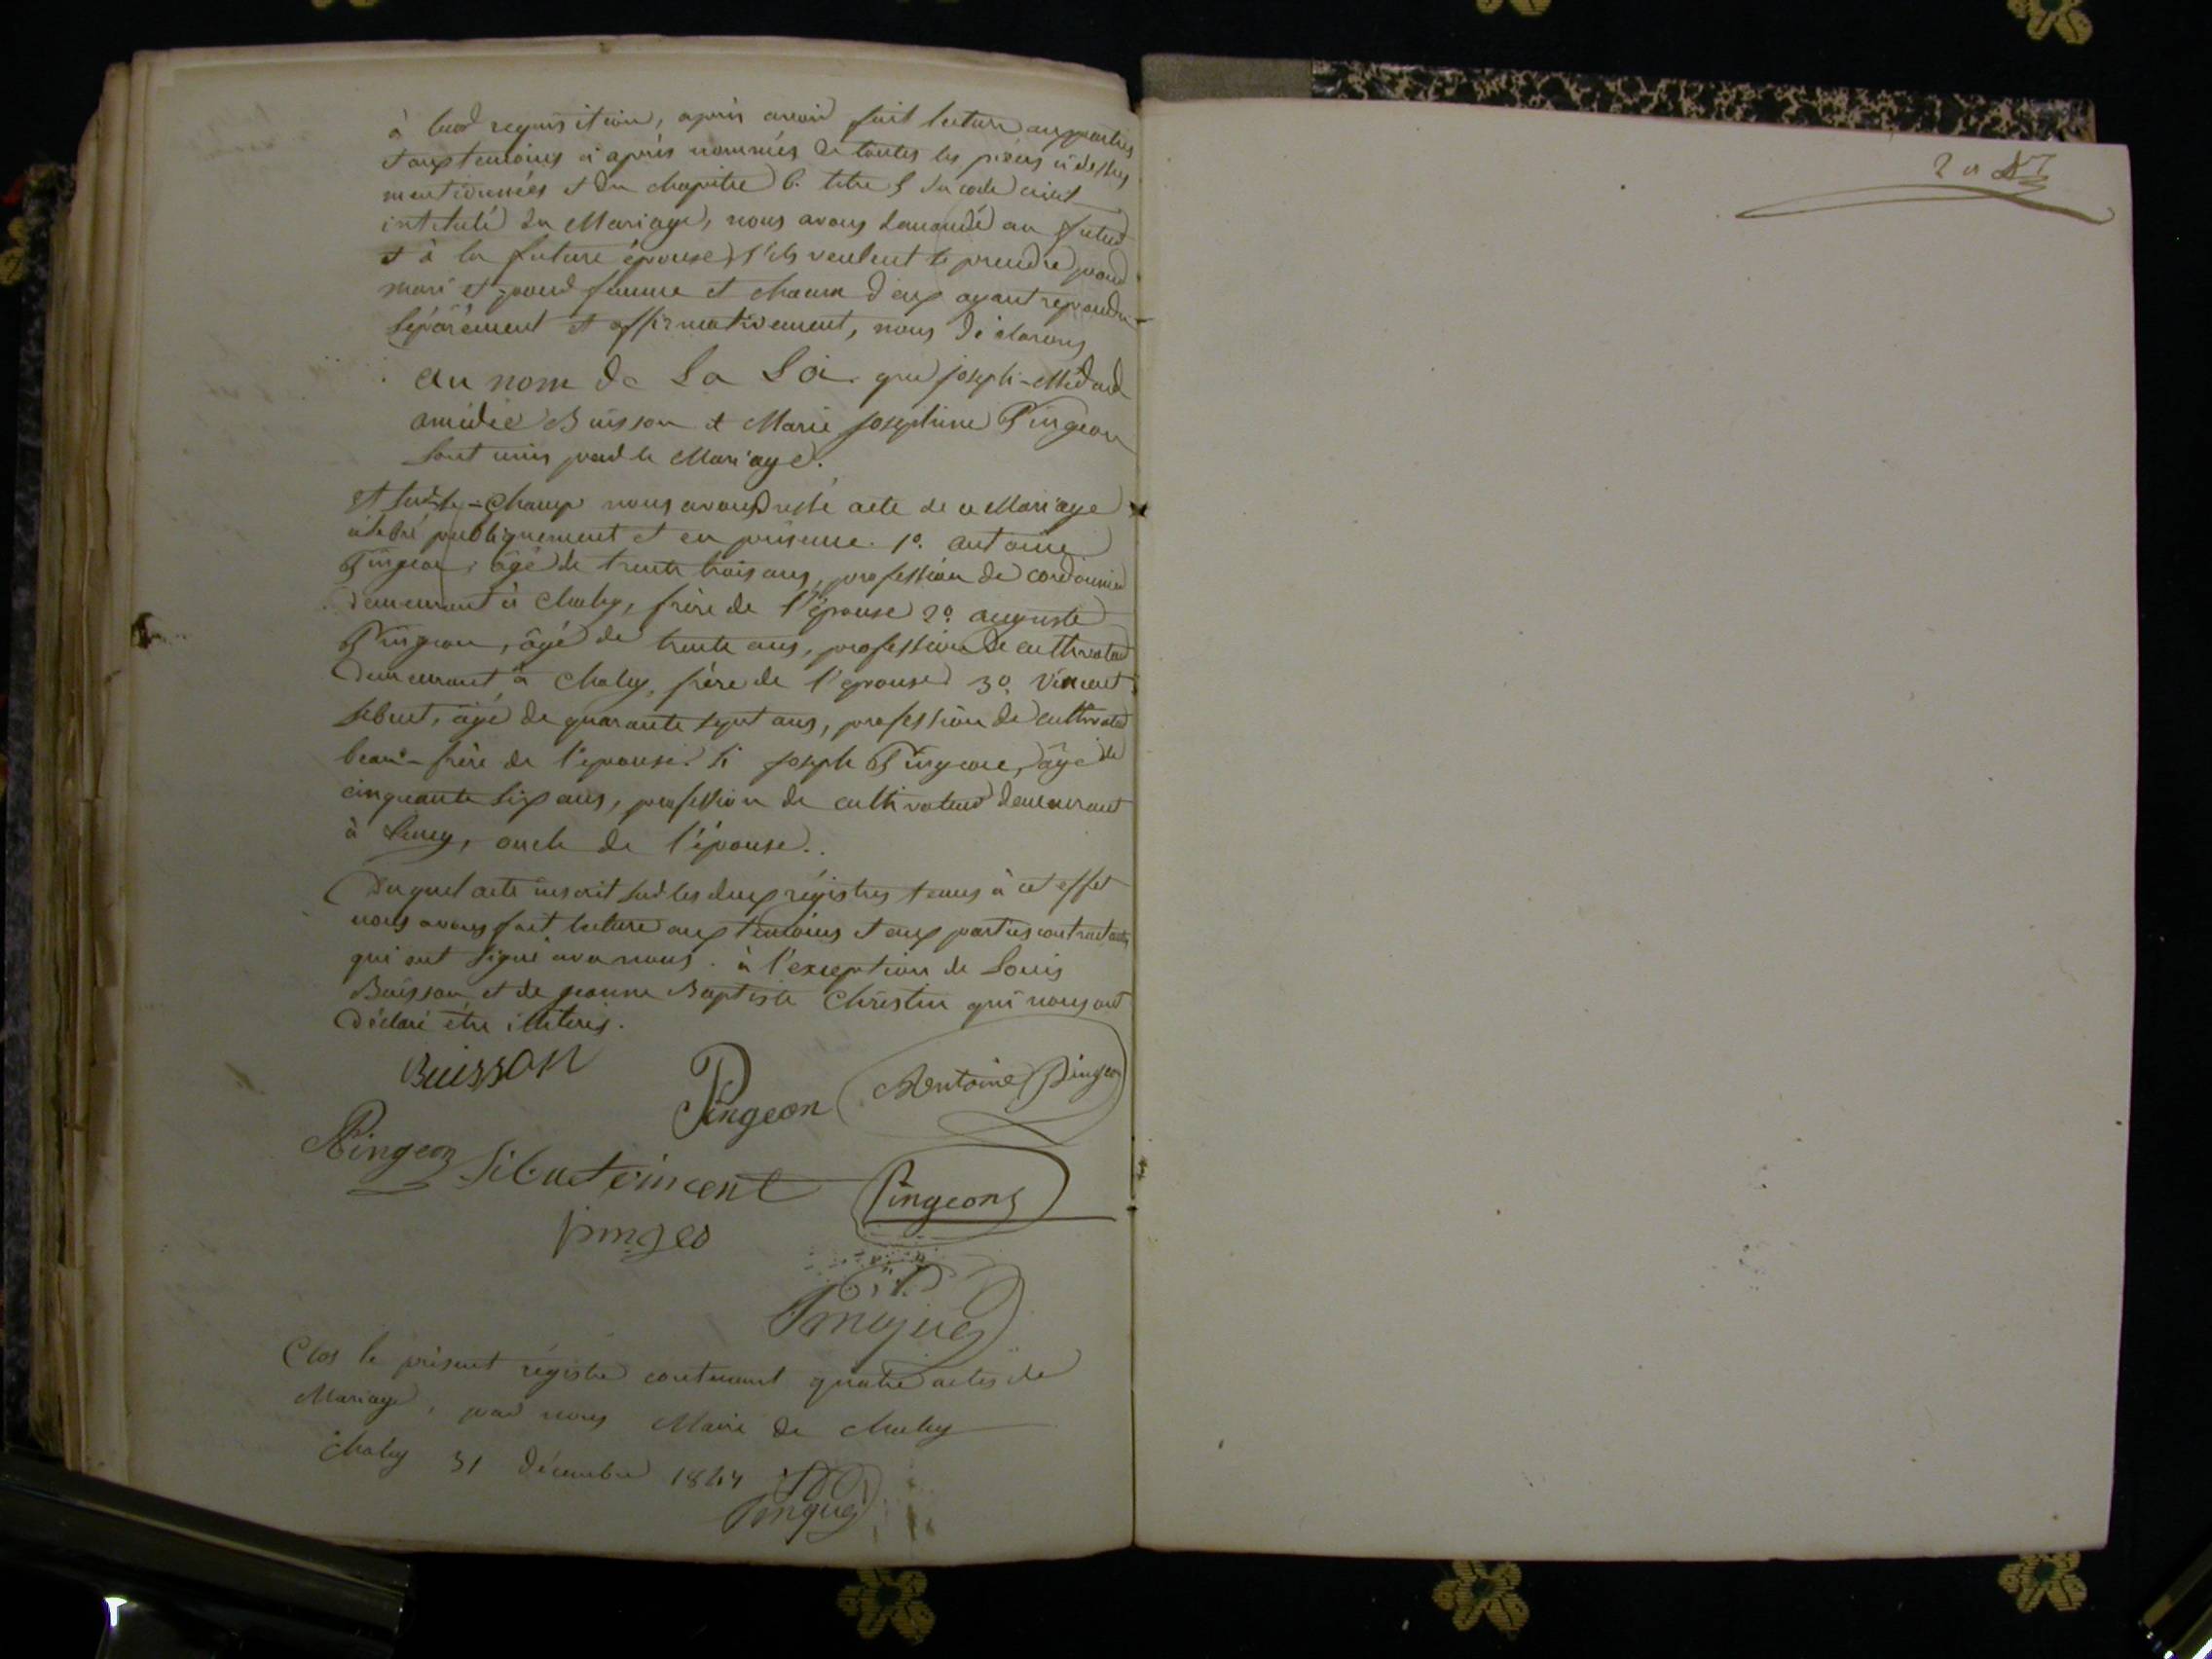 à leur requisition, après avoir fait lecture aux parties
et aux temoins ci après nommés de toutes les pièces ci dessus
mentionnées et du chapitre 6. titre 5 du code civil
intitulé du Mariage, nous avons demandé au futur
et à la future épouse s'ils veulent se prendre pour
mari et pour femme et chacun d'eux ayant repondu
séparément et affirmativement, nous déclarons
au nom de La Loi que joseph-Médard
amédée Buisson et Marie josephine Pingeon
sont unis par le Mariage.
et sur-le-champ nous avons dressé acte de ce Mariage
célébré publiquement et en présence. 1º. antoine
Pingeon, âgé de trente trois ans, profession de cordonnier
demeurant à Chaley, frère de l'épouse 2º. auguste
Pingeon, âgé de trente ans, profession de cultivateur
demeurant à Chaley, frère de l'épouse 3º. Vincent
Sibuet, âgé de quarante sept ans, profession de cultivateur
beau-frère de l'épouse. joseph Pingeon, âgé de
cinquante six ans, profession de cultivateur demeurant
à oncle de l'épouse.
Duquel acte inscrit sur les deux régistres tenus à cet effet
nous avons fait lecture aux témoins et aux parties contractantes
qui ont signé avec nous. à l'exception de Louis
Buisson et de jeanne Baptiste Christin qui nous ont
déclaré etre illiterés.
Buisson
Pingeon Antoine Pingeon
Pingeon Sibuet vincent Pingeon
pingeo
Clos le présent régistre contenant quatre actes de
Mariage, par nous Maire de Chaley
Chaley 31 décembre 1844